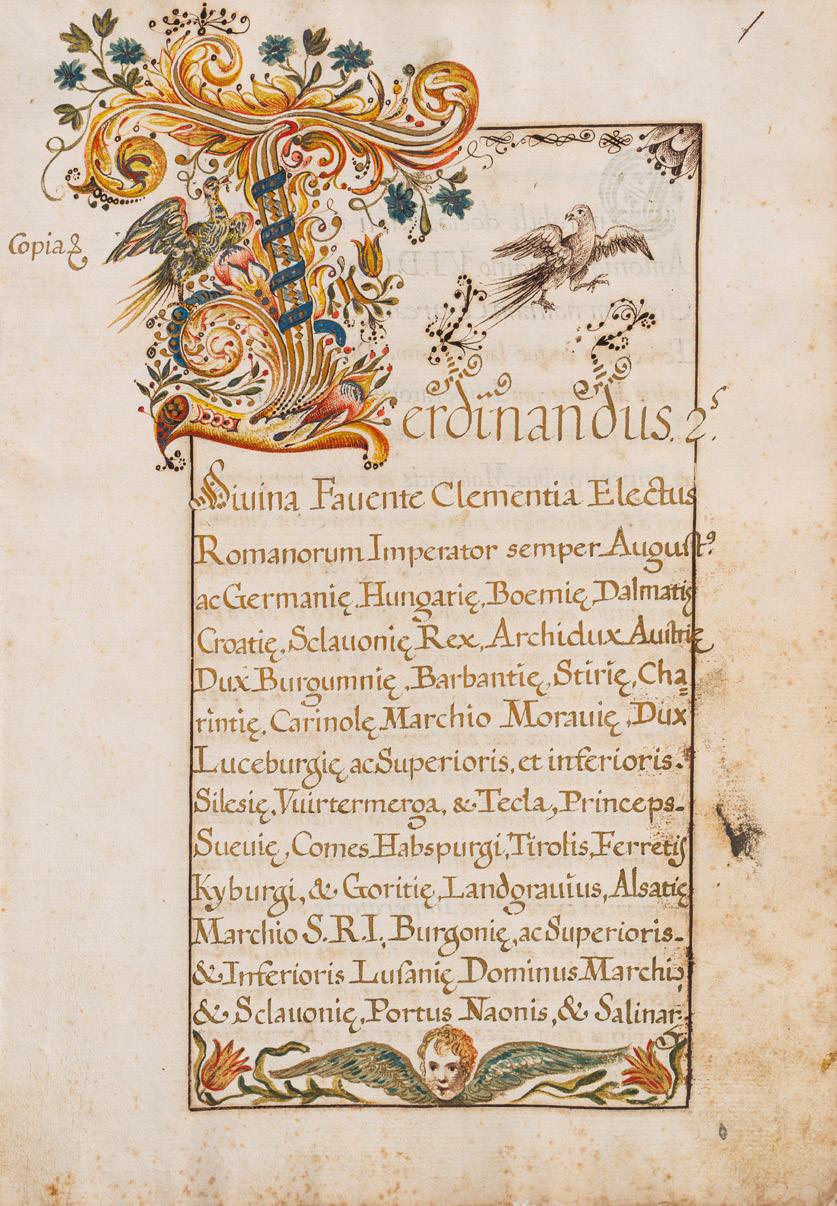 1
Copia
Ferdinandus. 2s.
Diuina Fauente Clementia Electus
Romanorum Imperator semper August9
ac Germanię, Hungarię, Boemię, Dalmatię
Croatię, Sclauonię Rex, Archidux Austrię
Dux Burgumnię, Barbantię, Stirię, Cha=
rintię, Carinolę Marchio Morauię, Dux
Luceburgię, ac Superioris, et inferioris.
Silesię, Vuirtermerga, & Tecla, Princeps.
Sueuię, Comes Habspurgi, Tirolis, Ferretis
Kyburgi, & Goritię, Landgrauius, Alsatię
Marchio S.R.I, Burgonię, ac Superioris.
& Inferioris Lusanię Dominus Marchię
& Sclauonię, Portus Naonis, & Salinar